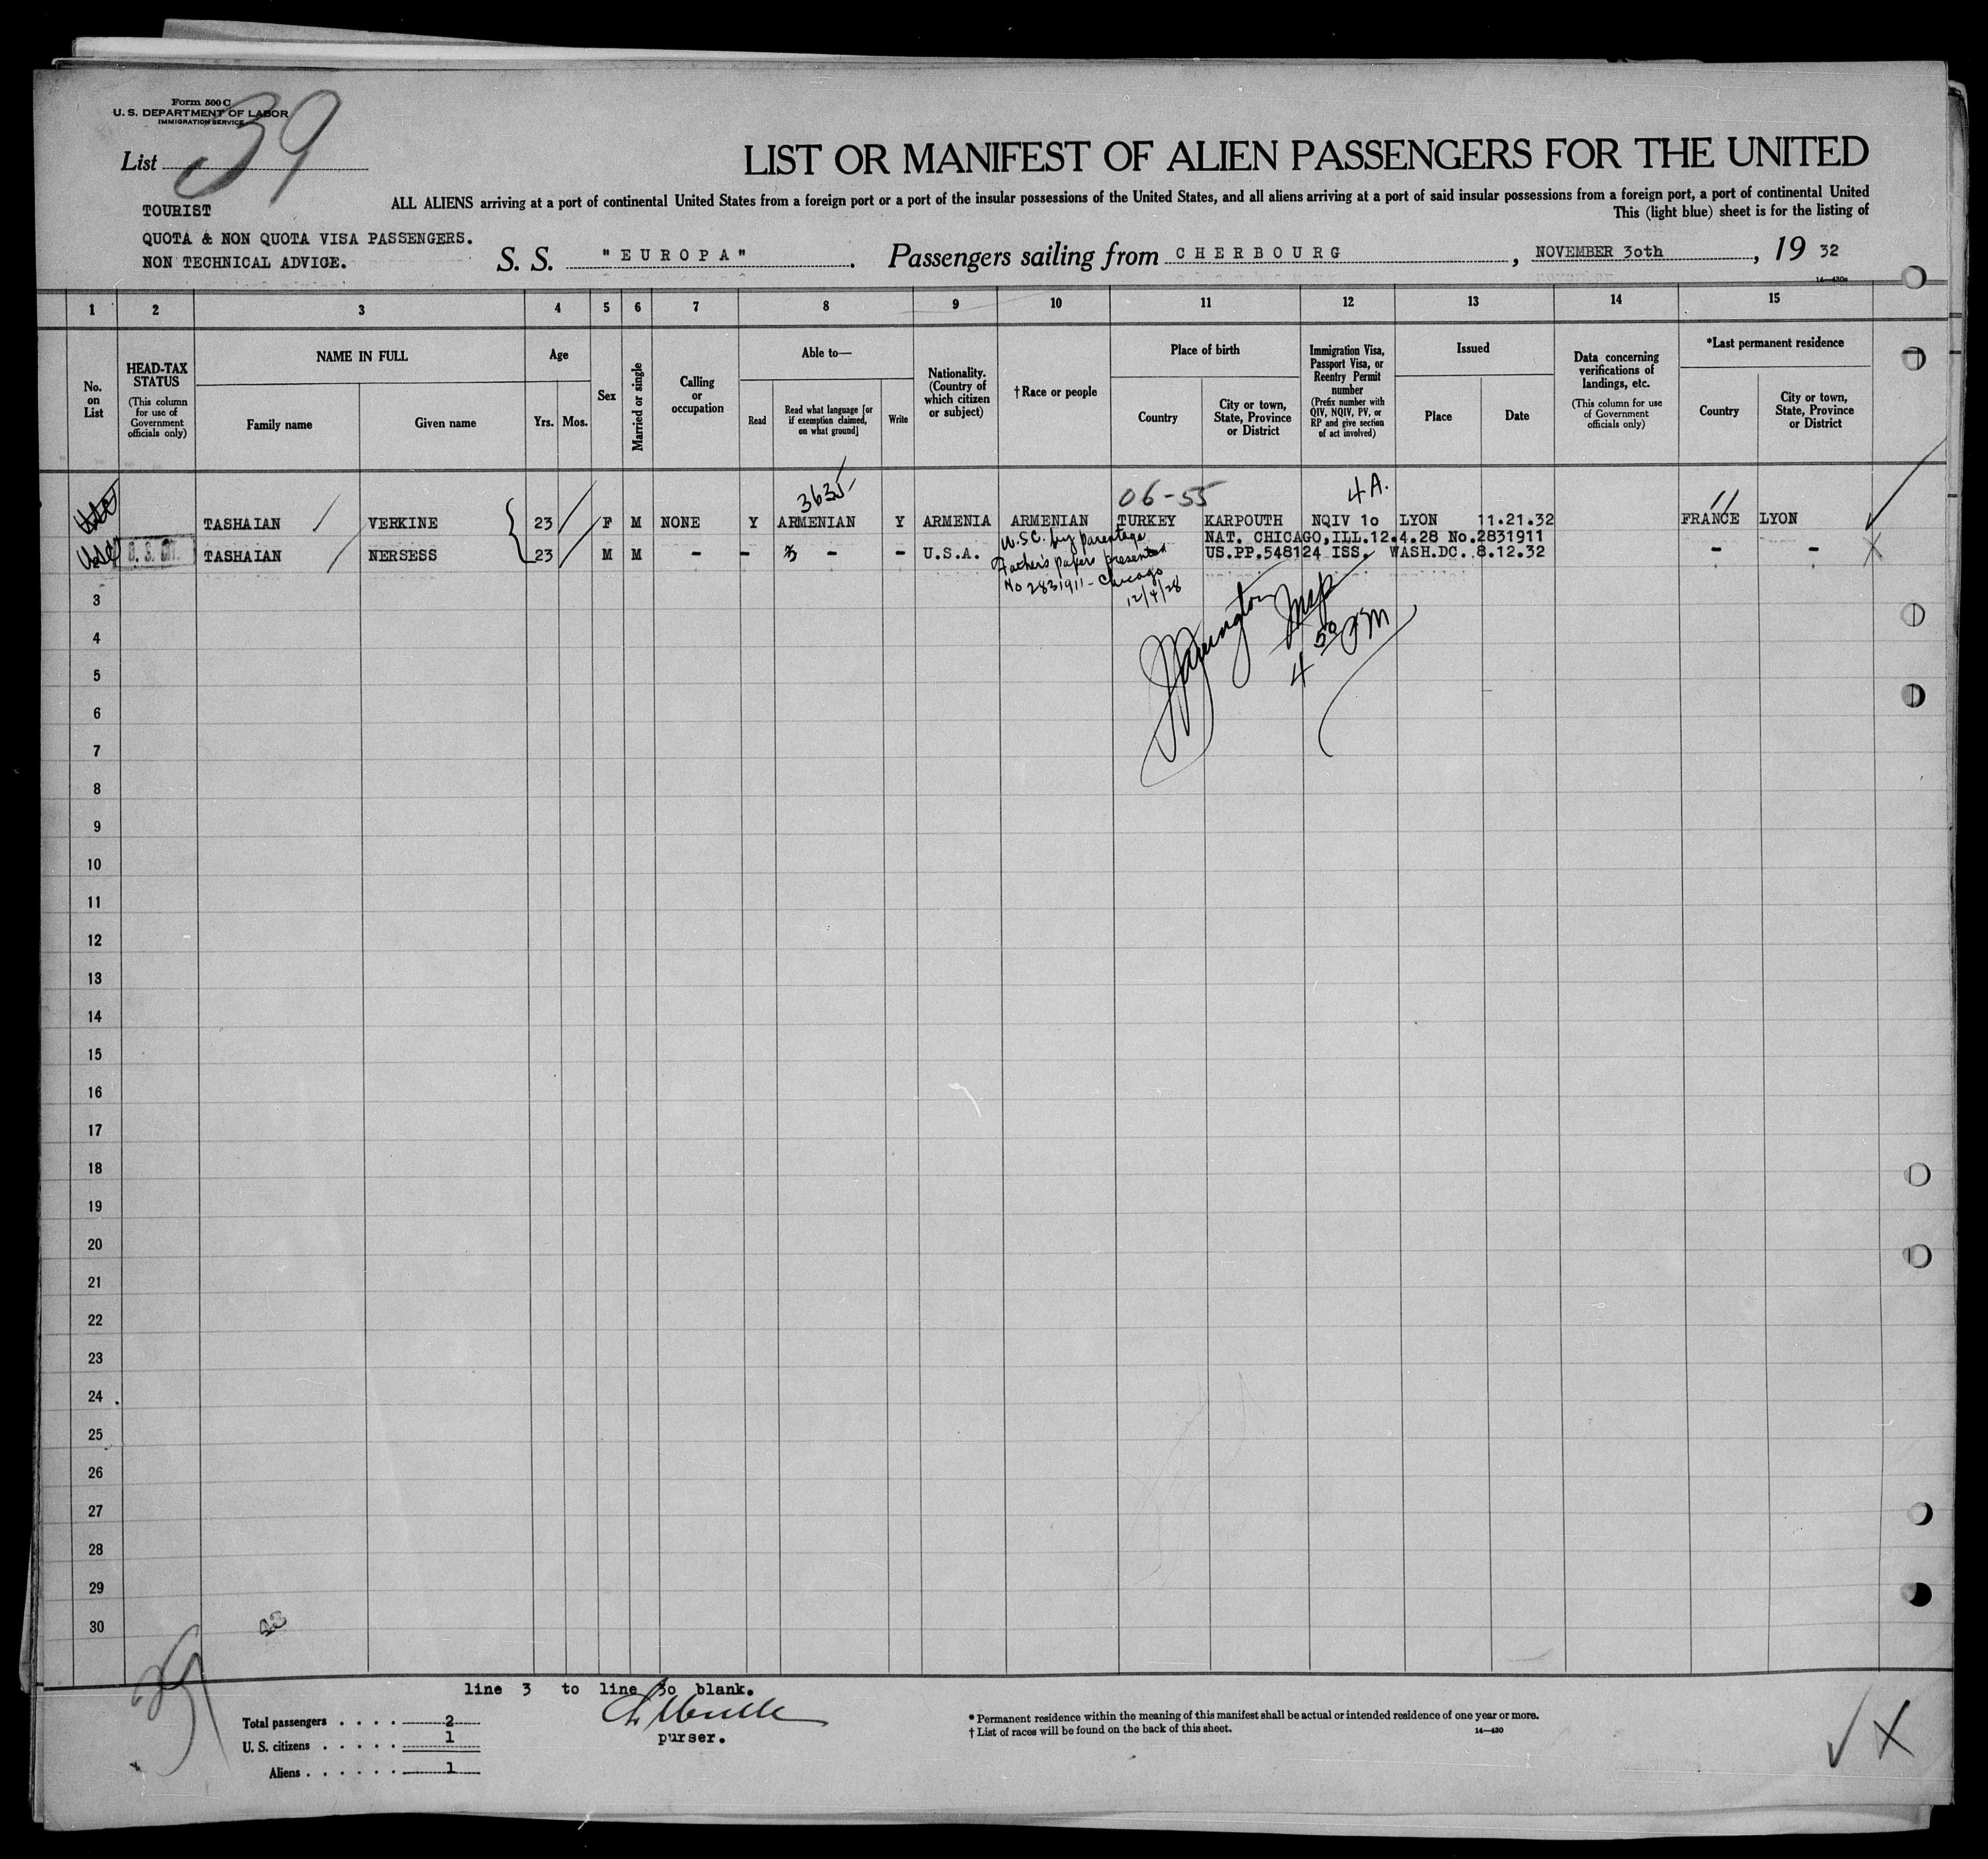 Form 500 C
U. S. DEPARTMENT OF LABOR
IMMIGRATION SERVICE
List 39
LIST OR MANIFEST OF ALIEN PASSENGERS FOR THE UNITED
ALL ALIENS arriving at a port of continental United States from a foreign port or a port of the insular possessions of the United States, and all aliens arriving at a port of said insular possessions from a foreign port, a port of continental United
This (light blue) sheet is for the listing of
TOURIST
QUOTA & NON QUOTA VISA PASSENGERS.
NON TECHNICAL ADVICE.
S. S. "EUROPA". Passengers sailing from CHERBOURG, NOVEMBER 3oth, 19 32
14—430a
1 2 3 4 5 6 7 8 9 10 11 12 13 14 15
No. on List
HEAD-TAX STATUS
(This column for use of Government officials only)
NAME IN FULL
Family name
Given name
Age
Yrs.
Mos.
Sex
Married or single
Calling or occupation
Able to—
Read
Read what language [or if exemption claimed, on what ground]
Write
Nationality. (Country of which citizen or subject)
†Race or people
Place of birth
Country
City or town, State, Province or District
Immigration Visa, Passport Visa, or Reentry Permit number
(Prefix number with QIV, NQIV, PV, or RP and give section of act involved)
Issued
Place
Date
Data concerning verifications of landings, etc.
(This column for use of Government officials only)
*Last permanent residence
Country
City or town, State, Province or District
3635 06-55 4A. 11
TASHAIAN VERKINE 23 F M NONE Y ARMENIAN Y ARMENIA ARMENIAN TURKEY KARPOUTH NQIV 1o LYON 11.21.32 FRANCE LYON
NAT. CHICAGO,ILL.12.4.28 No.2831911
USC U. S. CIT. TASHAIAN NERSESS 23 M M - - - - U.S.A. US.PP.548124 ISS. WASH.DC. 8.12.32 - -
U.S.C. by parentage
Father's papers presented
No 2831911 - Chicago
12/4/28
Insp
4 50 PM
3
4
5
6
7
8
9
10
11
12
13
14
15
16
17
18
19
20
21
22
23
24
25
26
27
28
29
30
43
39
line 3 to line 3o blank.
purser.
Total passengers . . . . 2
U. S. citizens . . . . . 1
Aliens . . . . . . 1
* Permanent residence within the meaning of this manifest shall be actual or intended residence of one year or more.
† List of races will be found on the back of this sheet.
14—430